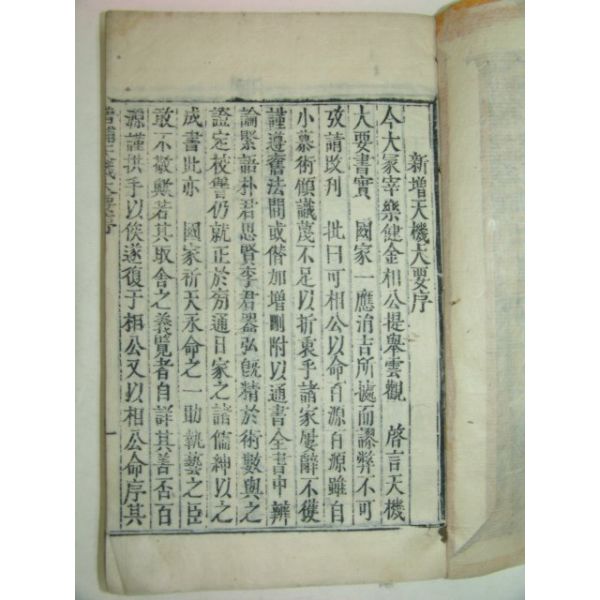 新增天機大要序
今大冢宰樂健金相公提舉雲觀 啓言天機
大要書實 國家一應涓吉所據而謬弊不可
攷請改刊 批曰可相公以命百源百源雖自
小慕術傾識蔑不足以折衷乎諸家屢辭不獲
謹遵舊法間或偕加增刪附以通書全書中辨
論緊語朴君思賢李君器弘旣精於術數與之
證定被譽仍就正於旁通日家之諸儒紳以之
成書此亦 國家祈天永命之一助執藝之臣
敢不敬歟若其取舍之義覽者自詳其善否百
源謹拱乎以俟遂復于相公又以相公命序其
增補天機大要序
一